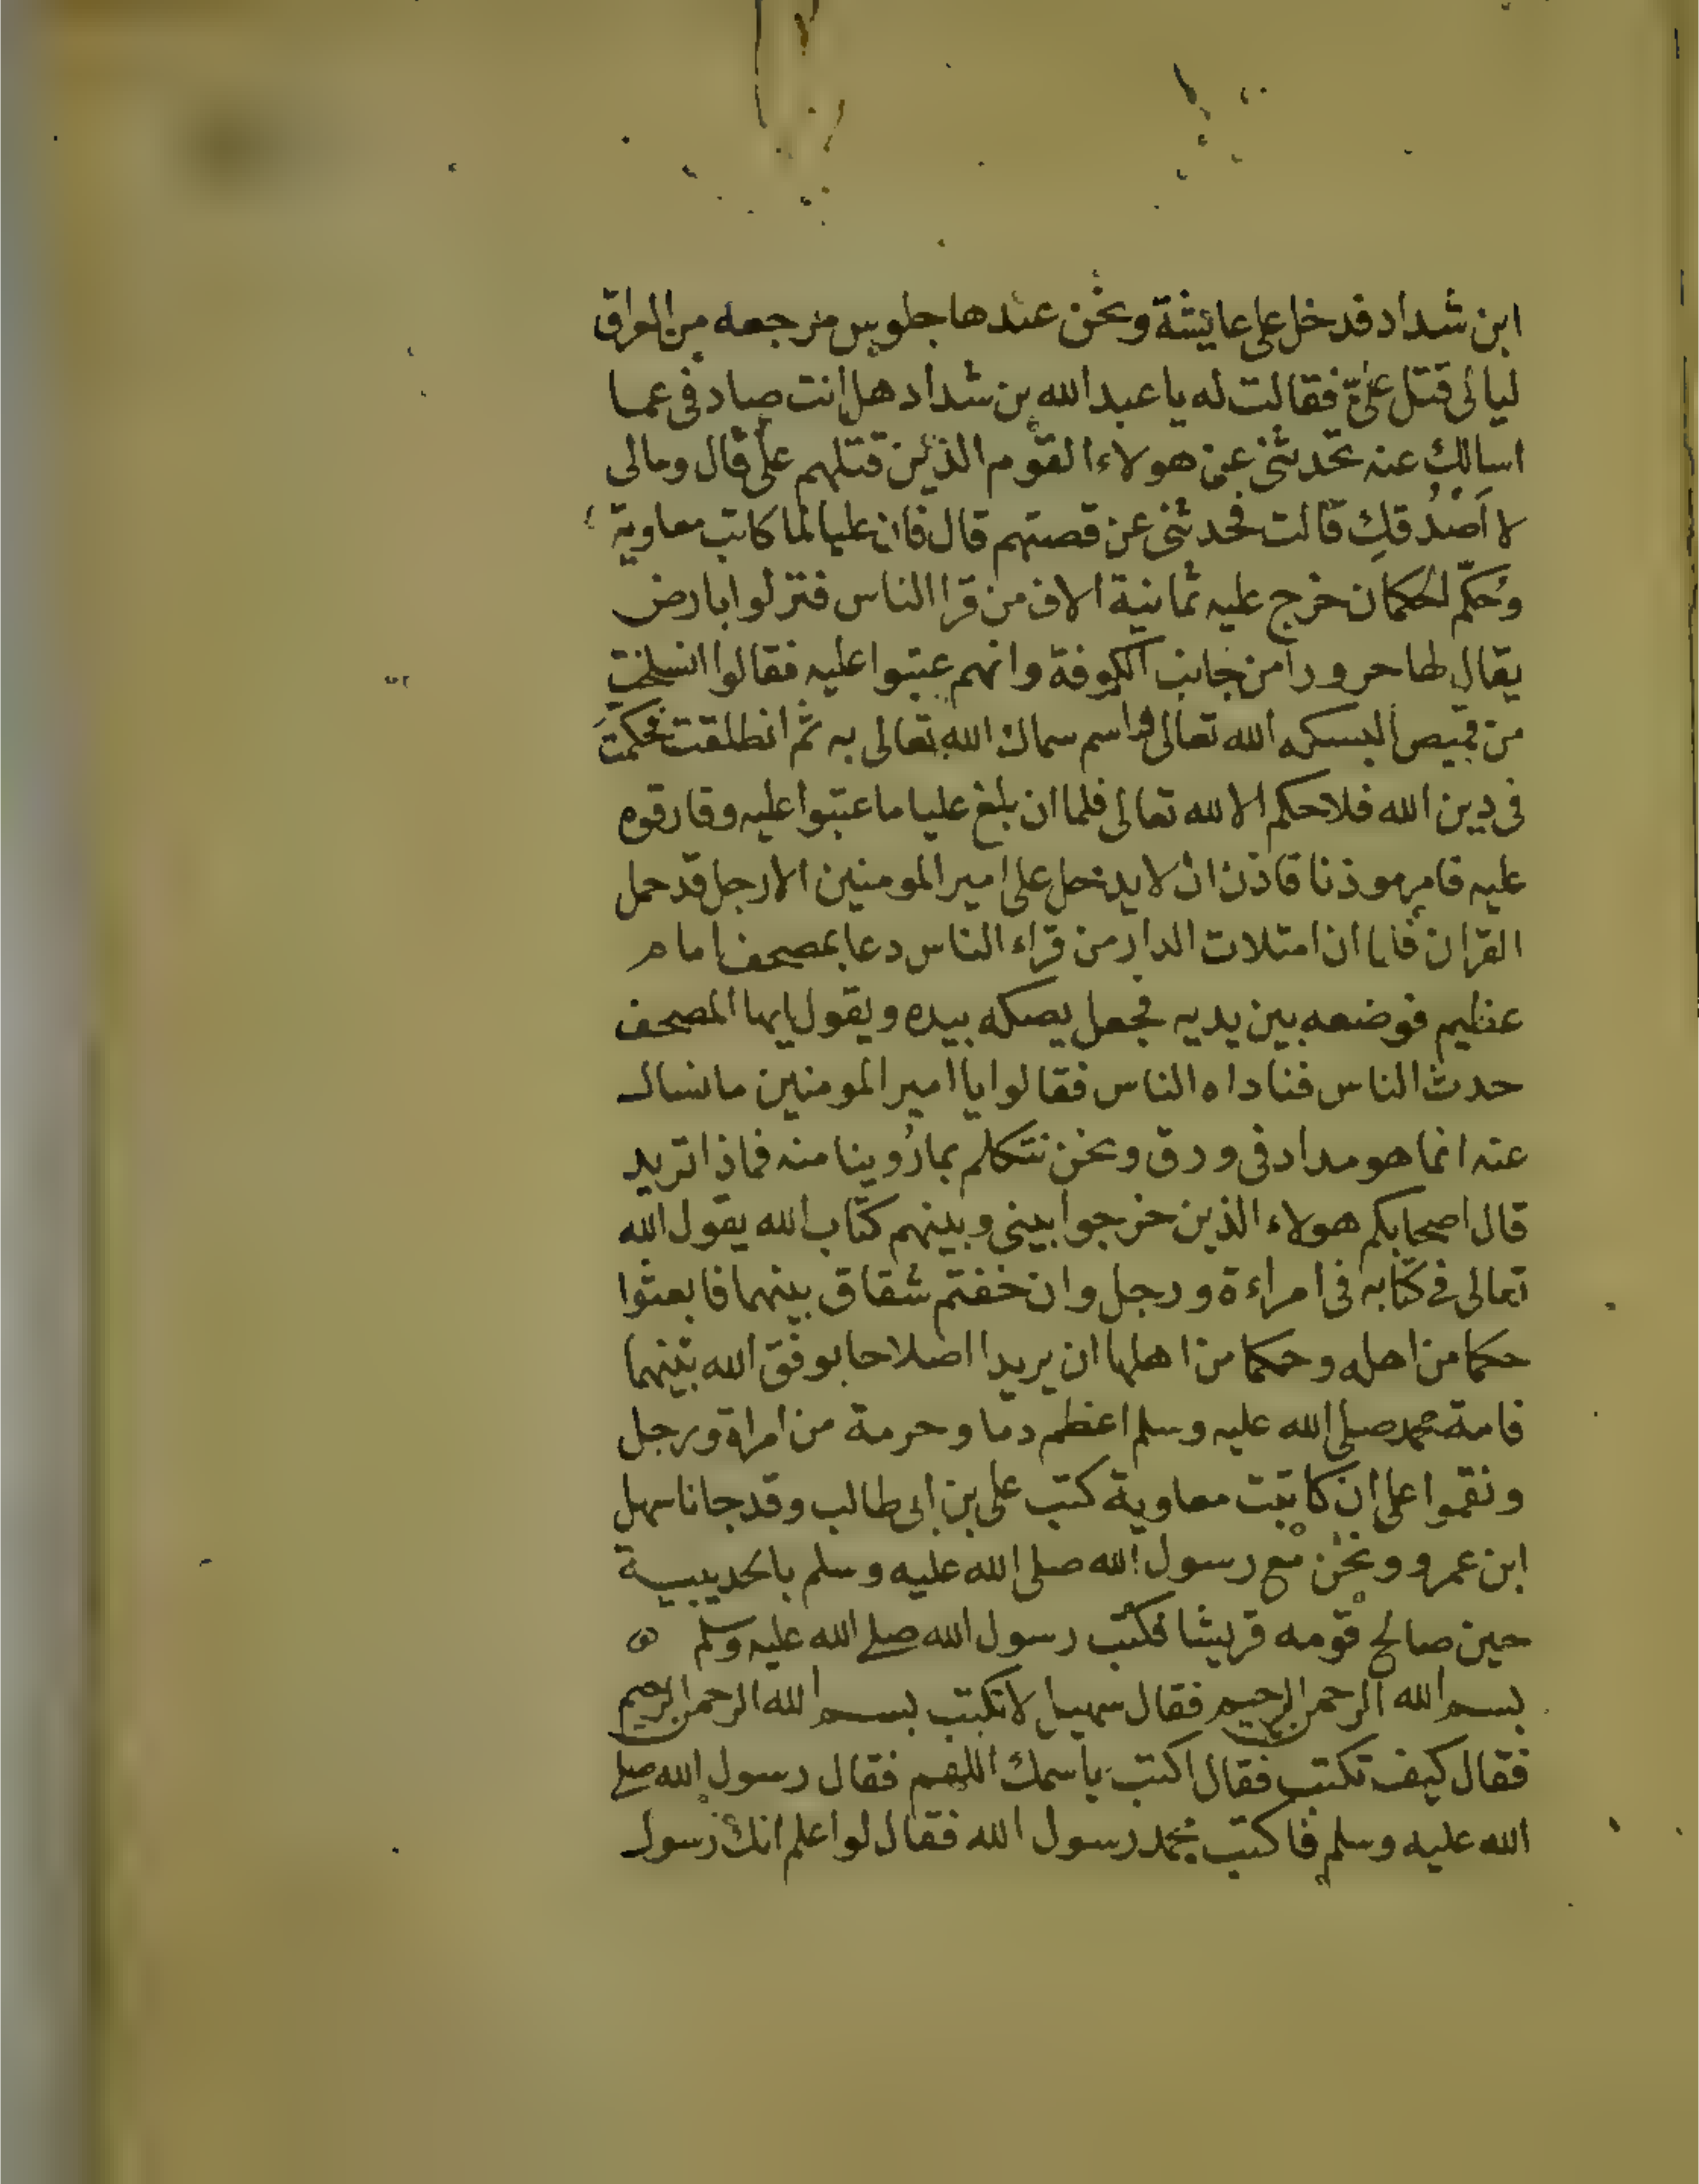 ابن شداد فدخل على عايشة ونحن عندها جلوس مرجعه من العراق
ليالى قتل على فقالت له يا عبد الله بن شداد هل انت صادقى عما
اسالك عنه تحدثنى عن هولاء القوم الذين قتلهم على قال ومالى
لا اَصْدُقكِ قالت فحدثنى عن قصتهم قال فان عليا لما كاتب معاوية
وحُكّم الحكمان خرج عليه ثمانية الاف من قرا الناس فنزلوا بارض
يقال لها حرورا من جانب الكوفة وانهم عتبوا عليه فقالوا انسلخت
من قميص البسكه الله تعالى واسم سماك الله تعالى به ثم انطلقت فحكمت
فى دين الله فلا حكم الا لله تعالى فلما ان بلغ عليا ما عتبوا عليه وفارقوه
عليه فامر موذنا فاذن ان لا يدخل على امير المومنين الا رجل قد حمل
القران فلما ان امتلات الدار من قراء الناس دعا بمصحف امام
عظيم فوضعه بين يديه فجعل يصكه بيده ويقول ايها المصحف
حدث الناس فناداه الناس فقالوا يا امير المومنين ما نسال
عنه انما هو مداد فى ورق ونحن نتكلم بما رُوينا منه فماذا تريد
قال اصحابكم هولاء الذين خرجوا بينى وبينهم كتاب الله يقول الله
تعالى فى كتابه فى امراءة ورجل وان خفتم شقاق بينهما فابعثوا
حكما من اهله وحكما من اهلها ان يريدا اصلاحا يوفق الله بينهما
فامة محمد صلى الله عليه وسلم اعظم دما وحرمة من امراة ورجل
ونقموا على ان كاتبت معاوية كتب على بن ابى طالب وقد جانا سهل
ابن عمرو ونحن مع رسول الله صلى الله عليه وسلم بالحديبية
حين صالح قومه قريشا فكتب رسول الله صلى الله عليه وسلم
بسم الله الرحمن الرحيم فقال سهيل لا تكتب بسم الله الرحمن الرحيم
فقال كيف تكتب فقال اكتب باسمك اللهم فقال رسول الله صلى
الله عليه وسلم فاكتب محمد رسول الله فقال لو اعلم انك رسول